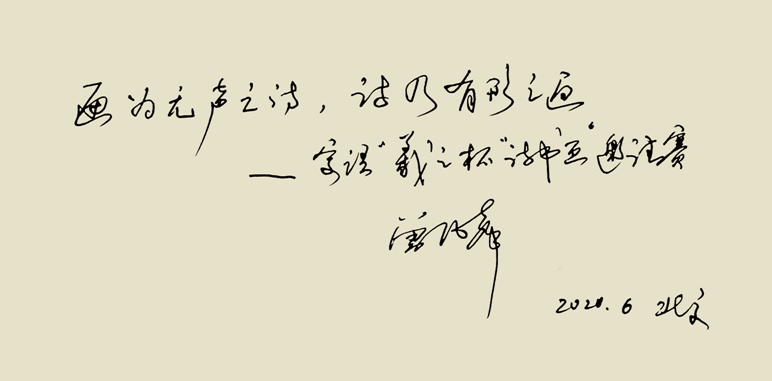 画为无声之诗，诗乃有形之画
——寄语“羲之杯”诗书画”邀请赛
2020.6 北京